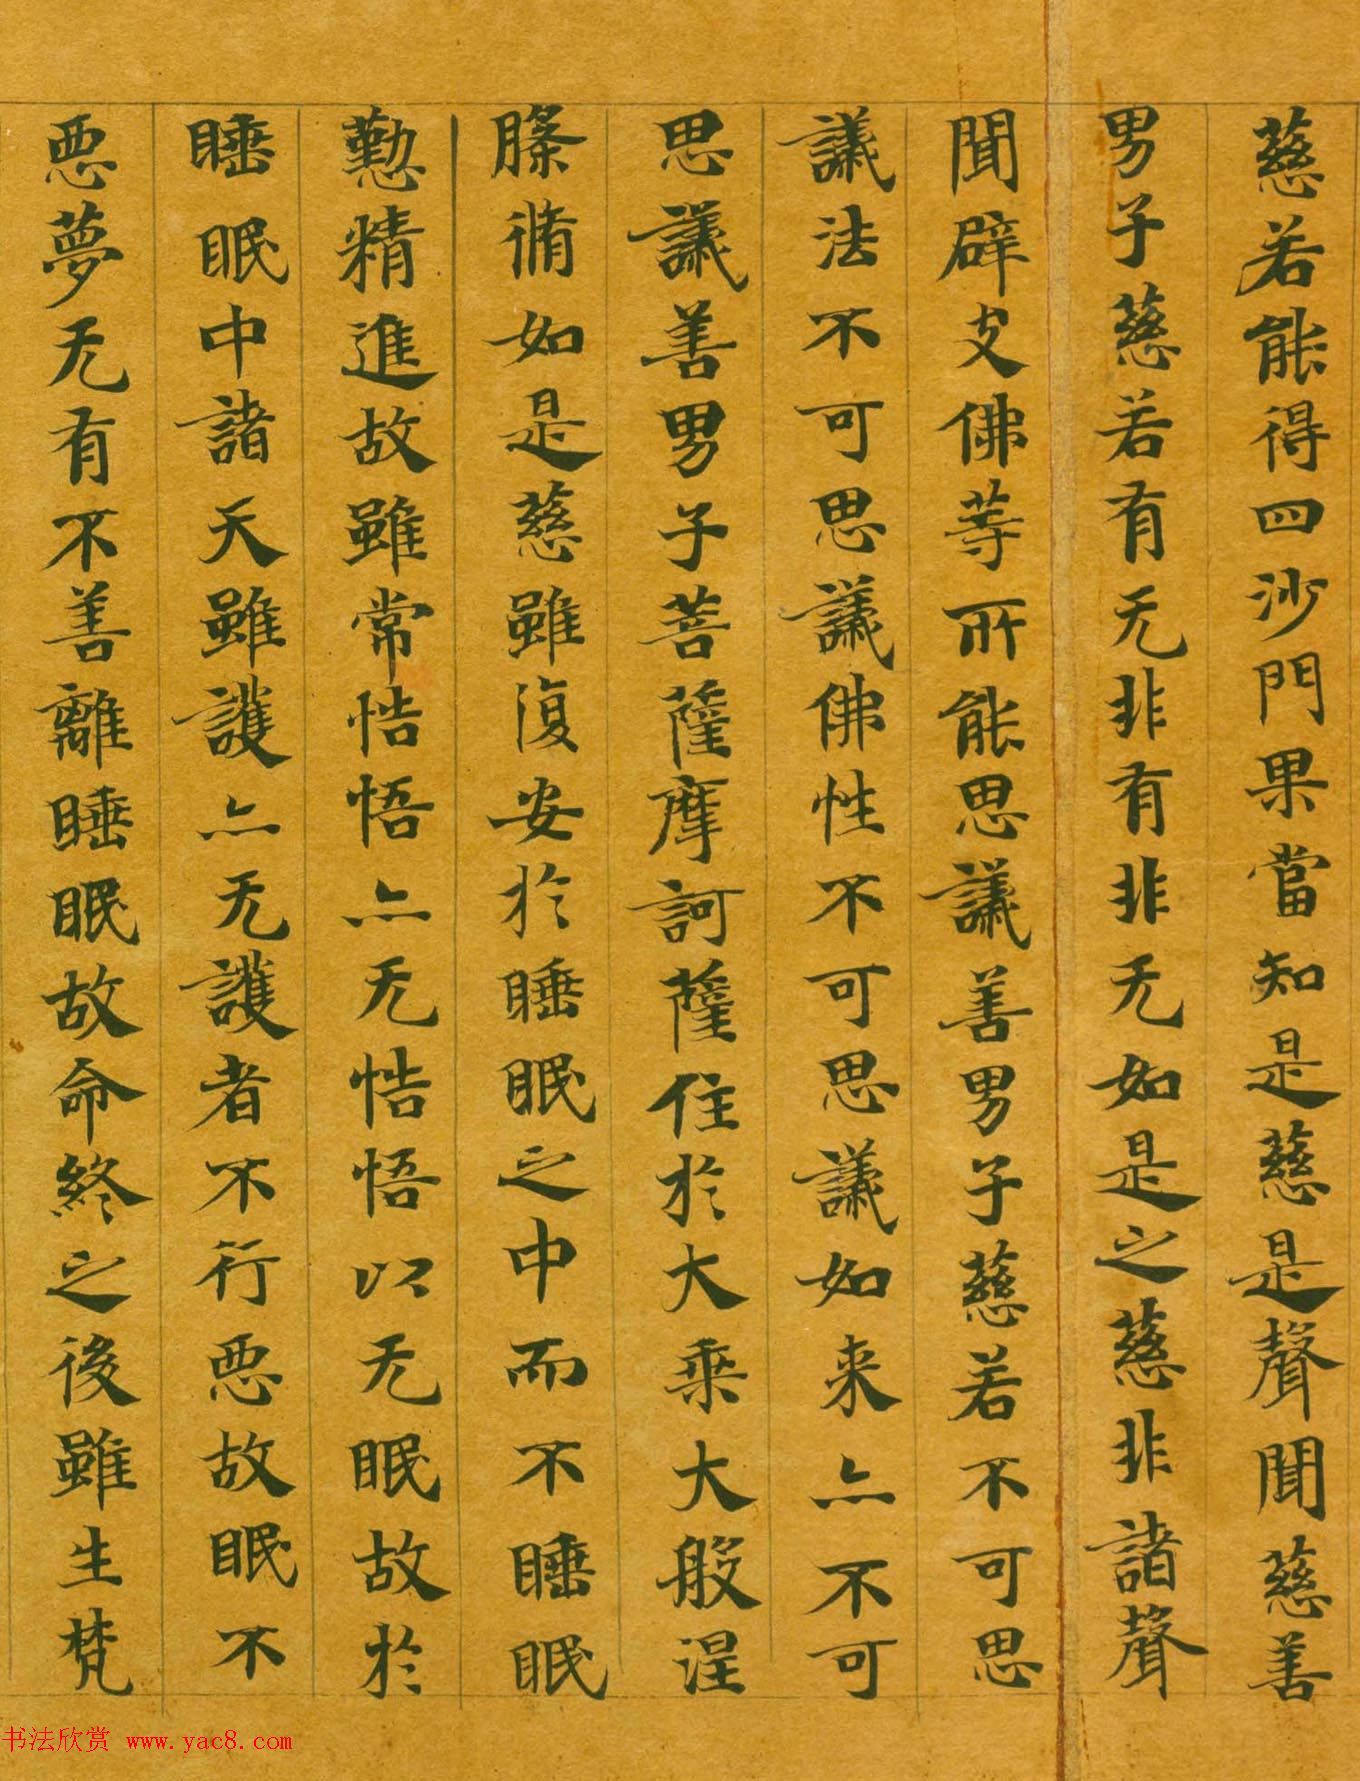 慈若能得四沙門果當知是慈是聲聞慈善
男子慈若有无非有非无如是之慈非諸聲
聞辟支佛等所能思議善男子慈若不可思
議法不可思議佛性不可思議如来亦不可
思議善男子菩薩摩訶薩住於大乘大般涅
槃脩如是慈雖復安於睡眠之中而不睡眠
懃精進故雖常悎悟亦无悎悟以无眠故於
睡眠中諸天雖護亦无護者不行惡故眠不
惡夢无有不善離睡眠故命終之後雖生梵
书法欣赏 www.yac8.com